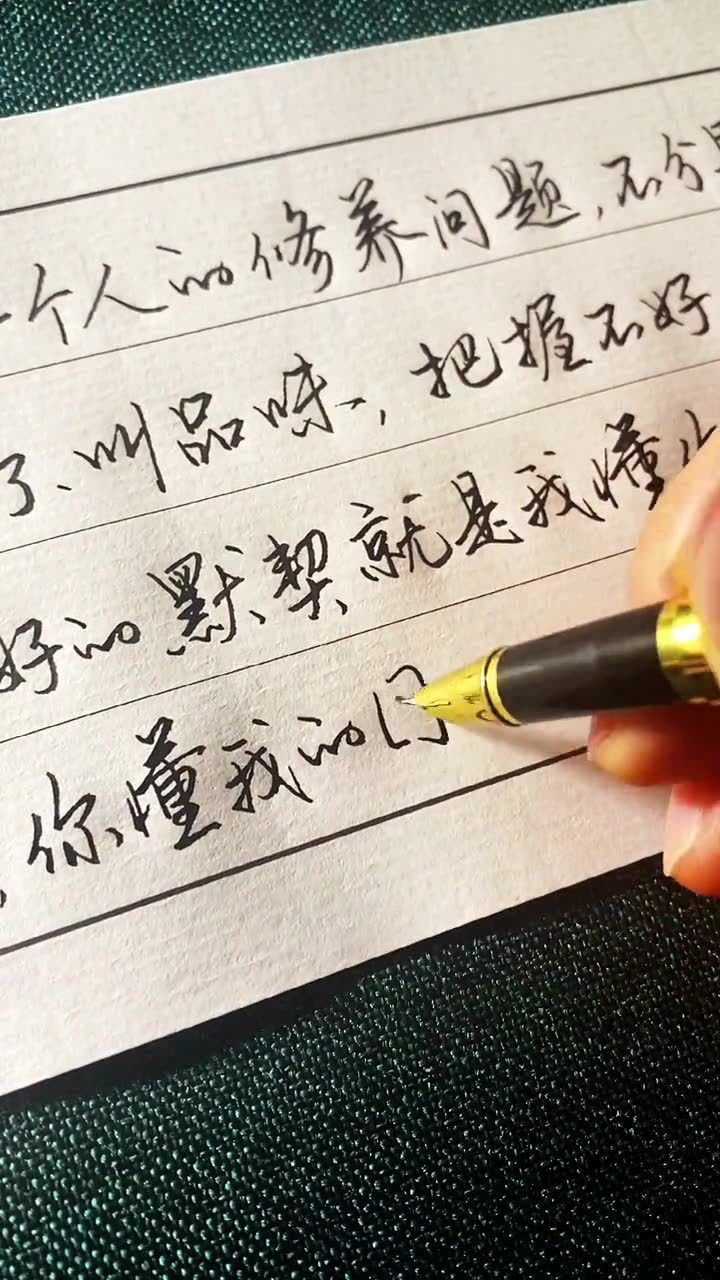 一个人的修养问题,不分
了、叫品味,把握不好
好的默契就是我懂
,你懂我的